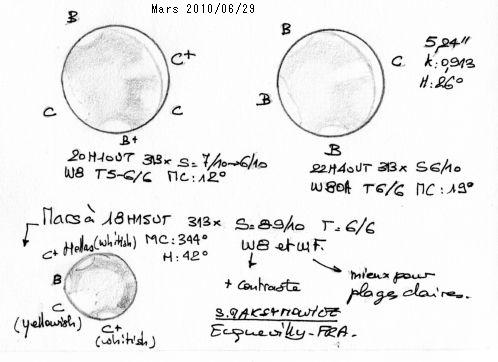 Mars 2010/06/29
B
C+
C
C
B+
20H10UT 313x S=7/10→6/10
W8 T5-6/6 MC:12°
B
C
B
B
5,24"
k:0,913
H:26°
22H40UT 313x S6/10
W80A T6/6 MC:19°
Mars à 18H15UT 313x S=8-9/10 T=6/6
MC:344° W8 et WF.
H:42°
C+ Hellas (whitish)
B
C
(yellowish)
C+
(whitish)
+ contraste
mieux pour
plages claires.
Ecquevilly-FRA.